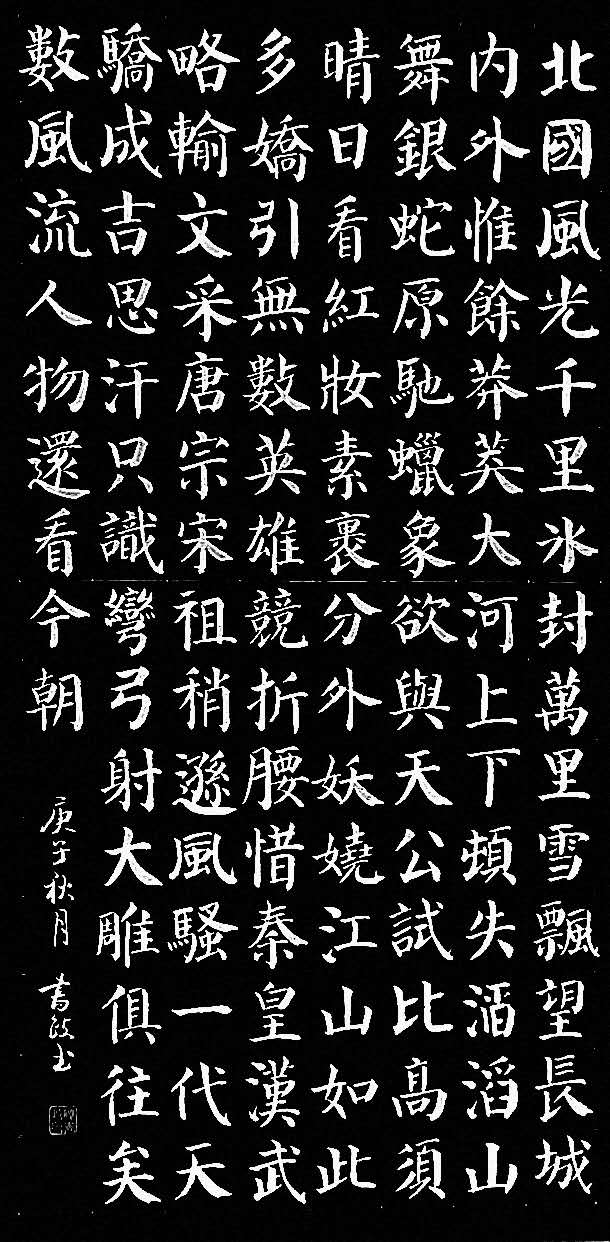 北國風光千里冰封萬里雪飄望長城
内外惟餘莽莽大河上下頓失滔滔山
舞銀蛇原馳蠟象欲與天公試比高須
晴日看紅妝素裹分外妖嬈江山如此
多嬌引無數英雄競折腰惜秦皇漢武
略輸文采唐宗宋祖稍遜風騷一代天
驕成吉思汗只識彎弓射大雕俱往矣
數風流人物還看今朝
庚子秋月